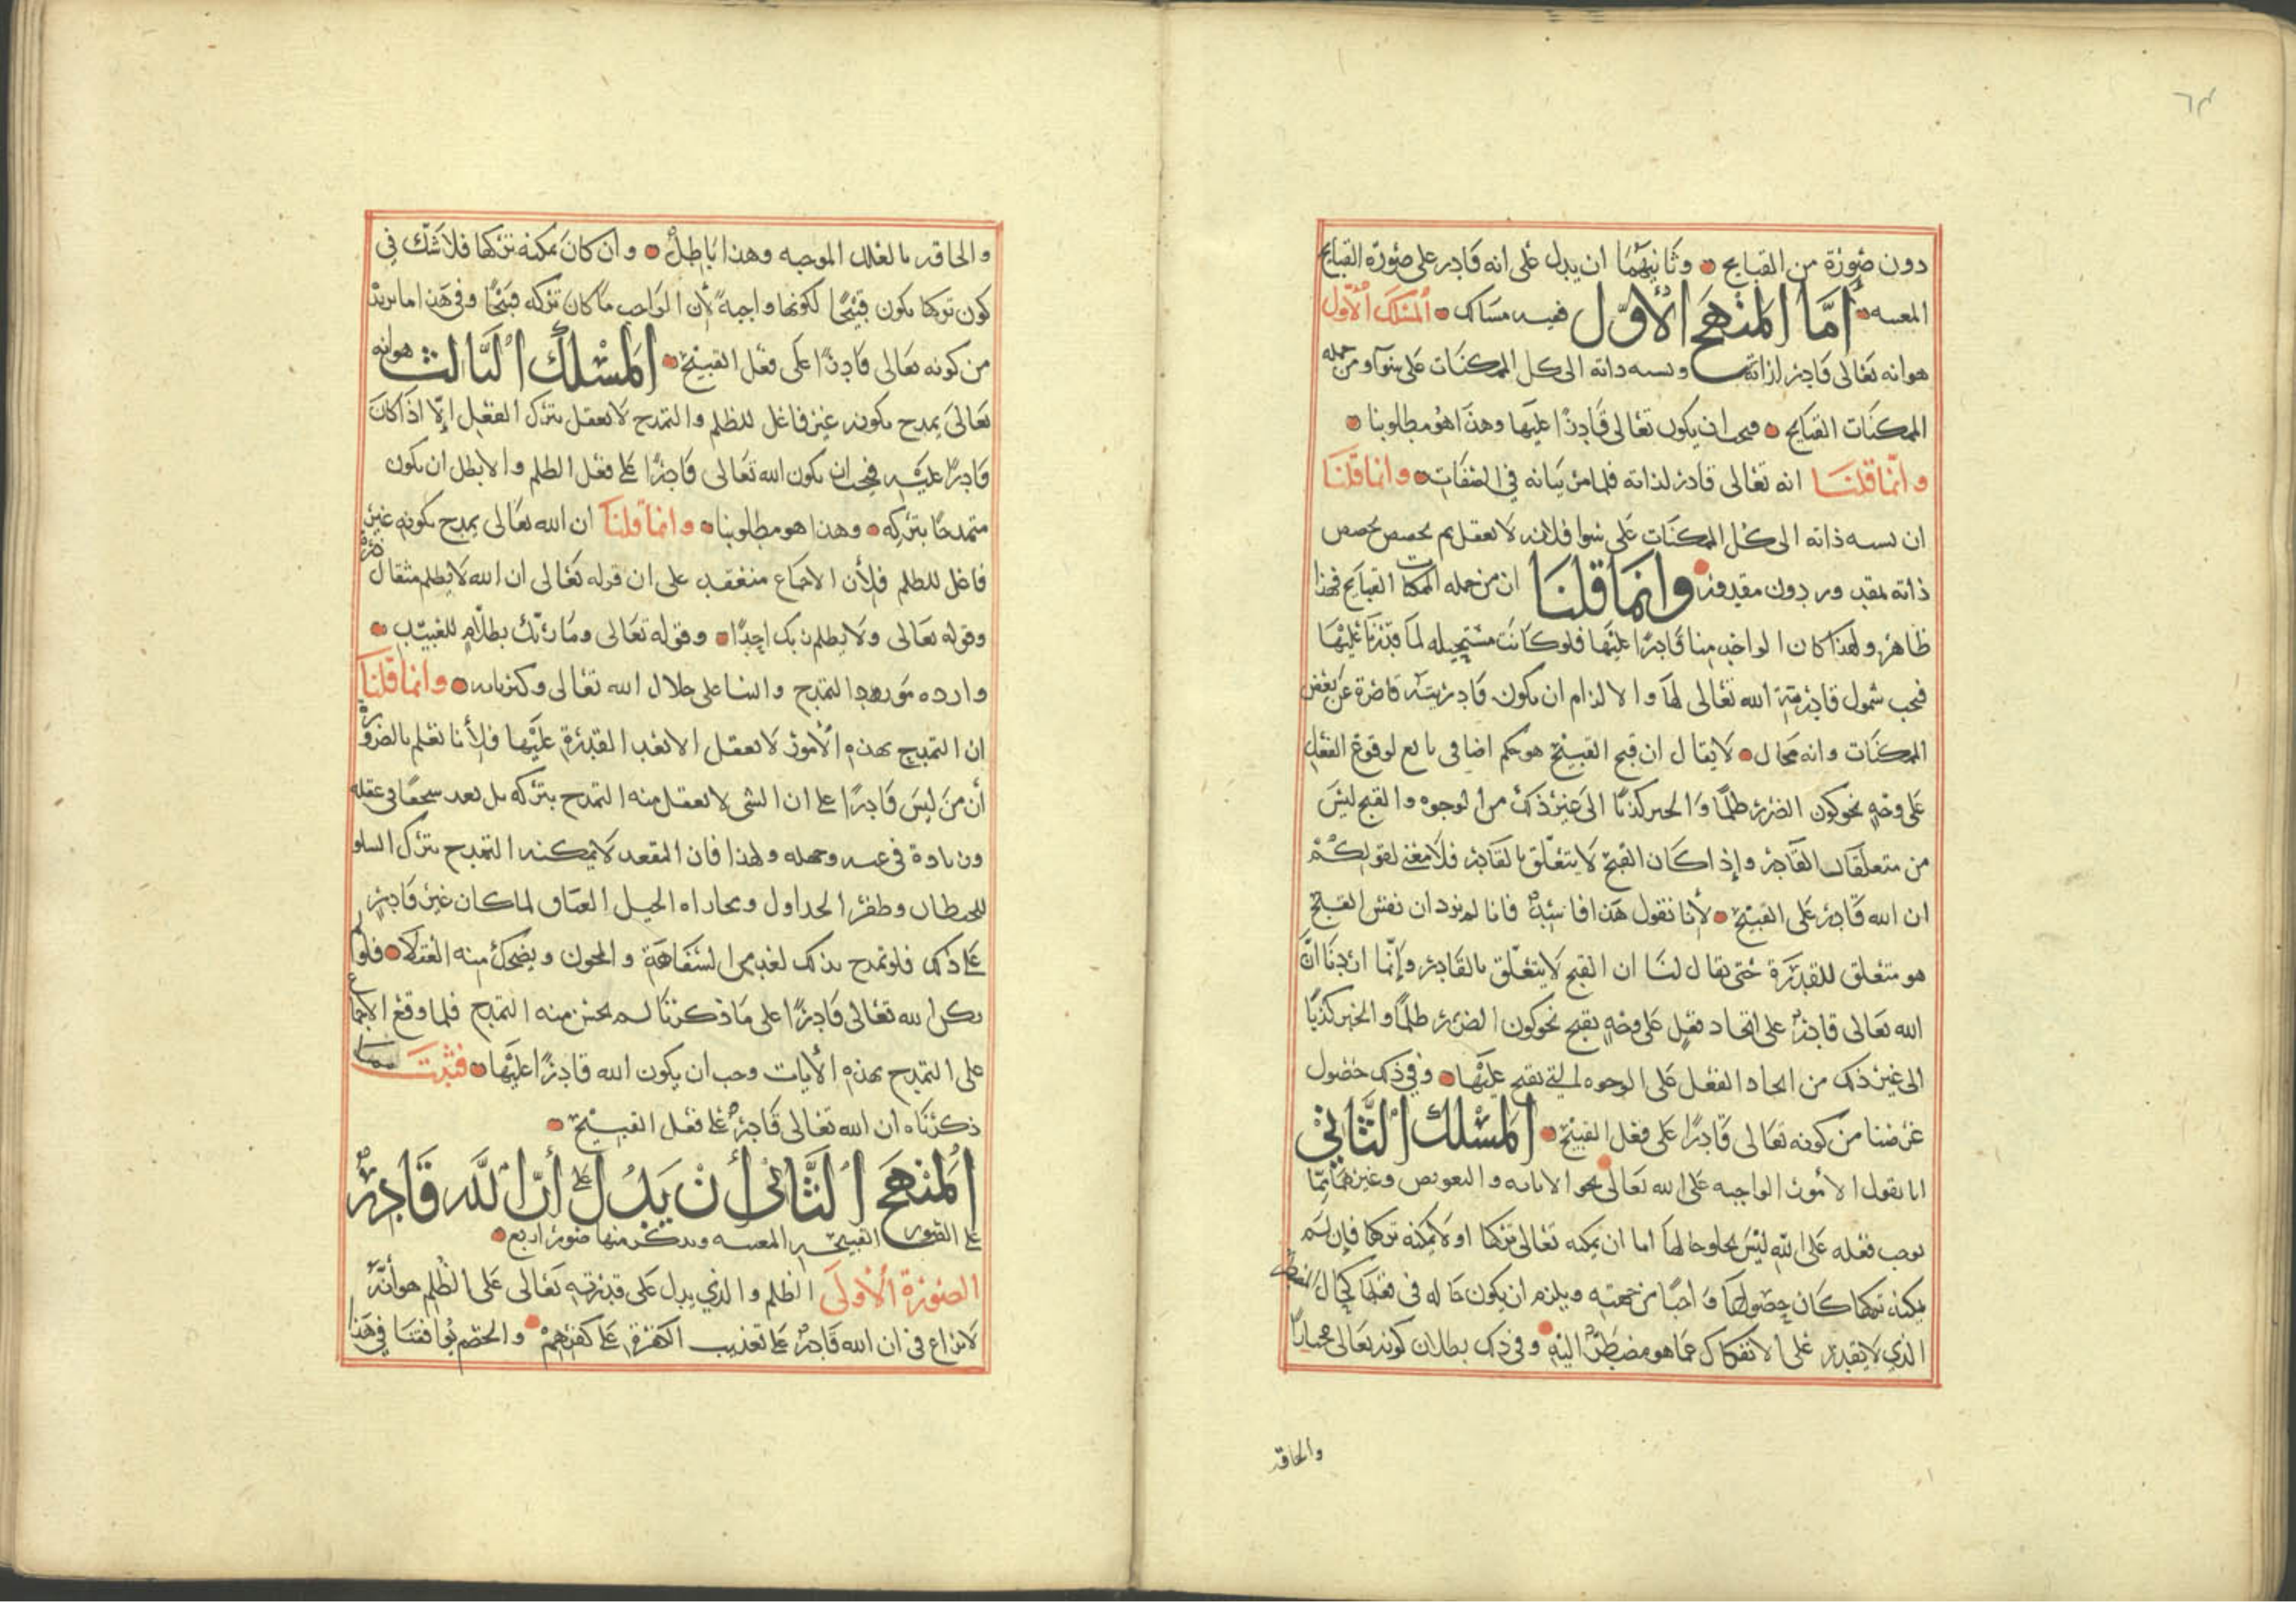 ٦٣
دون صورة من القبايح • وثانيهما ان يدل على انه قادر على صورة القبايح
المعينه • أما المنهج الأول ففيه مسالك • المسلك الأول
هو انه تعالى قادر لذاته ونسبه ذاته الى كل الممكنات على سوآ ومن جمله
الممكنات القبايح • فيجب ان يكون تعالى قادرًا عليها وهذا هو مطلوبنا •
وانما قلنا انه تعالى قادر لذاته فلما مر بيانه في الصفات • وانما قلنا
ان نسبه ذاته الى كل الممكنات على سوا فلانه لا يعقل ثم مخصص يخصص
ذاته بمقدور دون مقدور • وانما قلنا ان من جمله الممكنات القبايح فهذا
ظاهر ولهذا كان الواحد منا قادرًا عليها فلو كانت مستحيله لما قدرنا عليها
فيجب شمول قادرية الله تعالى لها والا لزم ان يكون قادريته قاصرة عن بعض
الممكنات وانه محال • لا يقال ان قبح القبيح هو حكم اضافى تابع لوقوع الفعل
على وجهٍ نحو كون الضرر ظلمًا والخبر كذبًا الى غير ذلك من الوجوه والقبح ليس
من متعلقات القادر وإذا كان القبح لا يتعلق بالقادر فلا معنى لقولكم
ان الله قادر على القبيح • لأنا نقول هذا فاسدٌ فانا لم نرد ان نفس القبح
هو متعلق للقدرة حتى يقال لنا ان القبح لا يتعلق بالقادر وإنما اردنا انَّ
الله تعالى قادرٌ على ايجاد فعلٍ على وجهٍ يقبح نحو كون الضرر ظلمًا والخبر كذبًا
الى غير ذلك من ايجاد الفعل على الوجوه التي يقبح عليها • وفي ذلك حصول
غرضنا من كونه تعالى قادرًا على فعل القبيح • المسلك الثاني
انا نقول الامور الواجبه على الله تعالى نحو الاثابه والتعويض وغيرهما ممّا
يوجب فعله على الله ليس يخلو حالها اما ان يمكنه تعالى تركها او لا يمكنه تركها فإن لم
يمكنه تركها كان حصولها واجبًا من جهته ويلزم ان يكون حاله في فعلها كحال المضطر
الذي لا يقدر على الانفكاك عما هو مضطرٌ اليه • وفي ذلك بطلان كونه تعالى مختارًا
والحاقه
والحاقه بالعلل الموجبه وهذا باطلٌ • وان كان يمكنه تركها فلا شكّ في
كون تركها يكون قبيحًا لكونها واجبهً لأن الواجب ما كان تركه قبيحًا وفي هذا ما نريد
من كونه تعالى قادرًا على فعل القبيح • المسلك الثالث هو انه
تعالى يمدح بكونه غير فاعل للظلم والتمدح لا يعقل بترك الفعل إلّا اذا كان
قادرًا عليه فيجب ان يكون الله تعالى قادرًا على فعل الظلم والا بطل ان يكون
متمدحًا بتركه • وهذا هو مطلوبنا • وانما قلنا ان الله تعالى يمدح بكونه غير
فاعل للظلم فلأن الاجماع منعقد على ان قوله تعالى ان الله لا يظلم مثقال ذرة
وقوله تعالى ولا يظلم ربك احدًا • وقوله تعالى وما ربّك بظلّامٍ للعبيد •
وارده مورد التمدح والثنا على جلال الله تعالى وكبريايه • وانما قلنا
ان التمدح بهذه الأمور لا يعقل الا بعد القدرة عليها فلأنا نعلم بالضرورة
أن من ليس قادرًا على ان الشي لا يعقل منه التمدح بتركه بل يعد سخفًا في عقله
وزيادة في عيه وجهله ولهذا فان المقعد لا يمكنه التمدح بترك السلو
للحيطان وطفر الجداول ومجاراه الخيل العتاق لما كان غير قادرٍ
على ذلك فلو تمدح بذلك لعد من السفاهة والمجون ويضحك منه العقلا • فلو لم
يكن الله تعالى قادرًا على ما ذكرنا لم يحسن منه التمدح فلما وقع الاجماع
على التمدح بهذه الأيات وجب ان يكون الله قادرًا عليها • فثبت بما
ذكرناه ان الله تعالى قادرٌ على فعل القبيح •
المنهج الثاني أن يدل على أنّ الله قادرٌ
على الصور القبيحه المعينه ونذكر منها صورًا اربع •
الصورة الأولى الظلم والذي يدل على قدرته تعالى على الظلم هو أنَّه
لا نزاع في ان الله قادرٌ على تعذيب الكفرة على كفرهم • والخصم يوافقنا في هذا